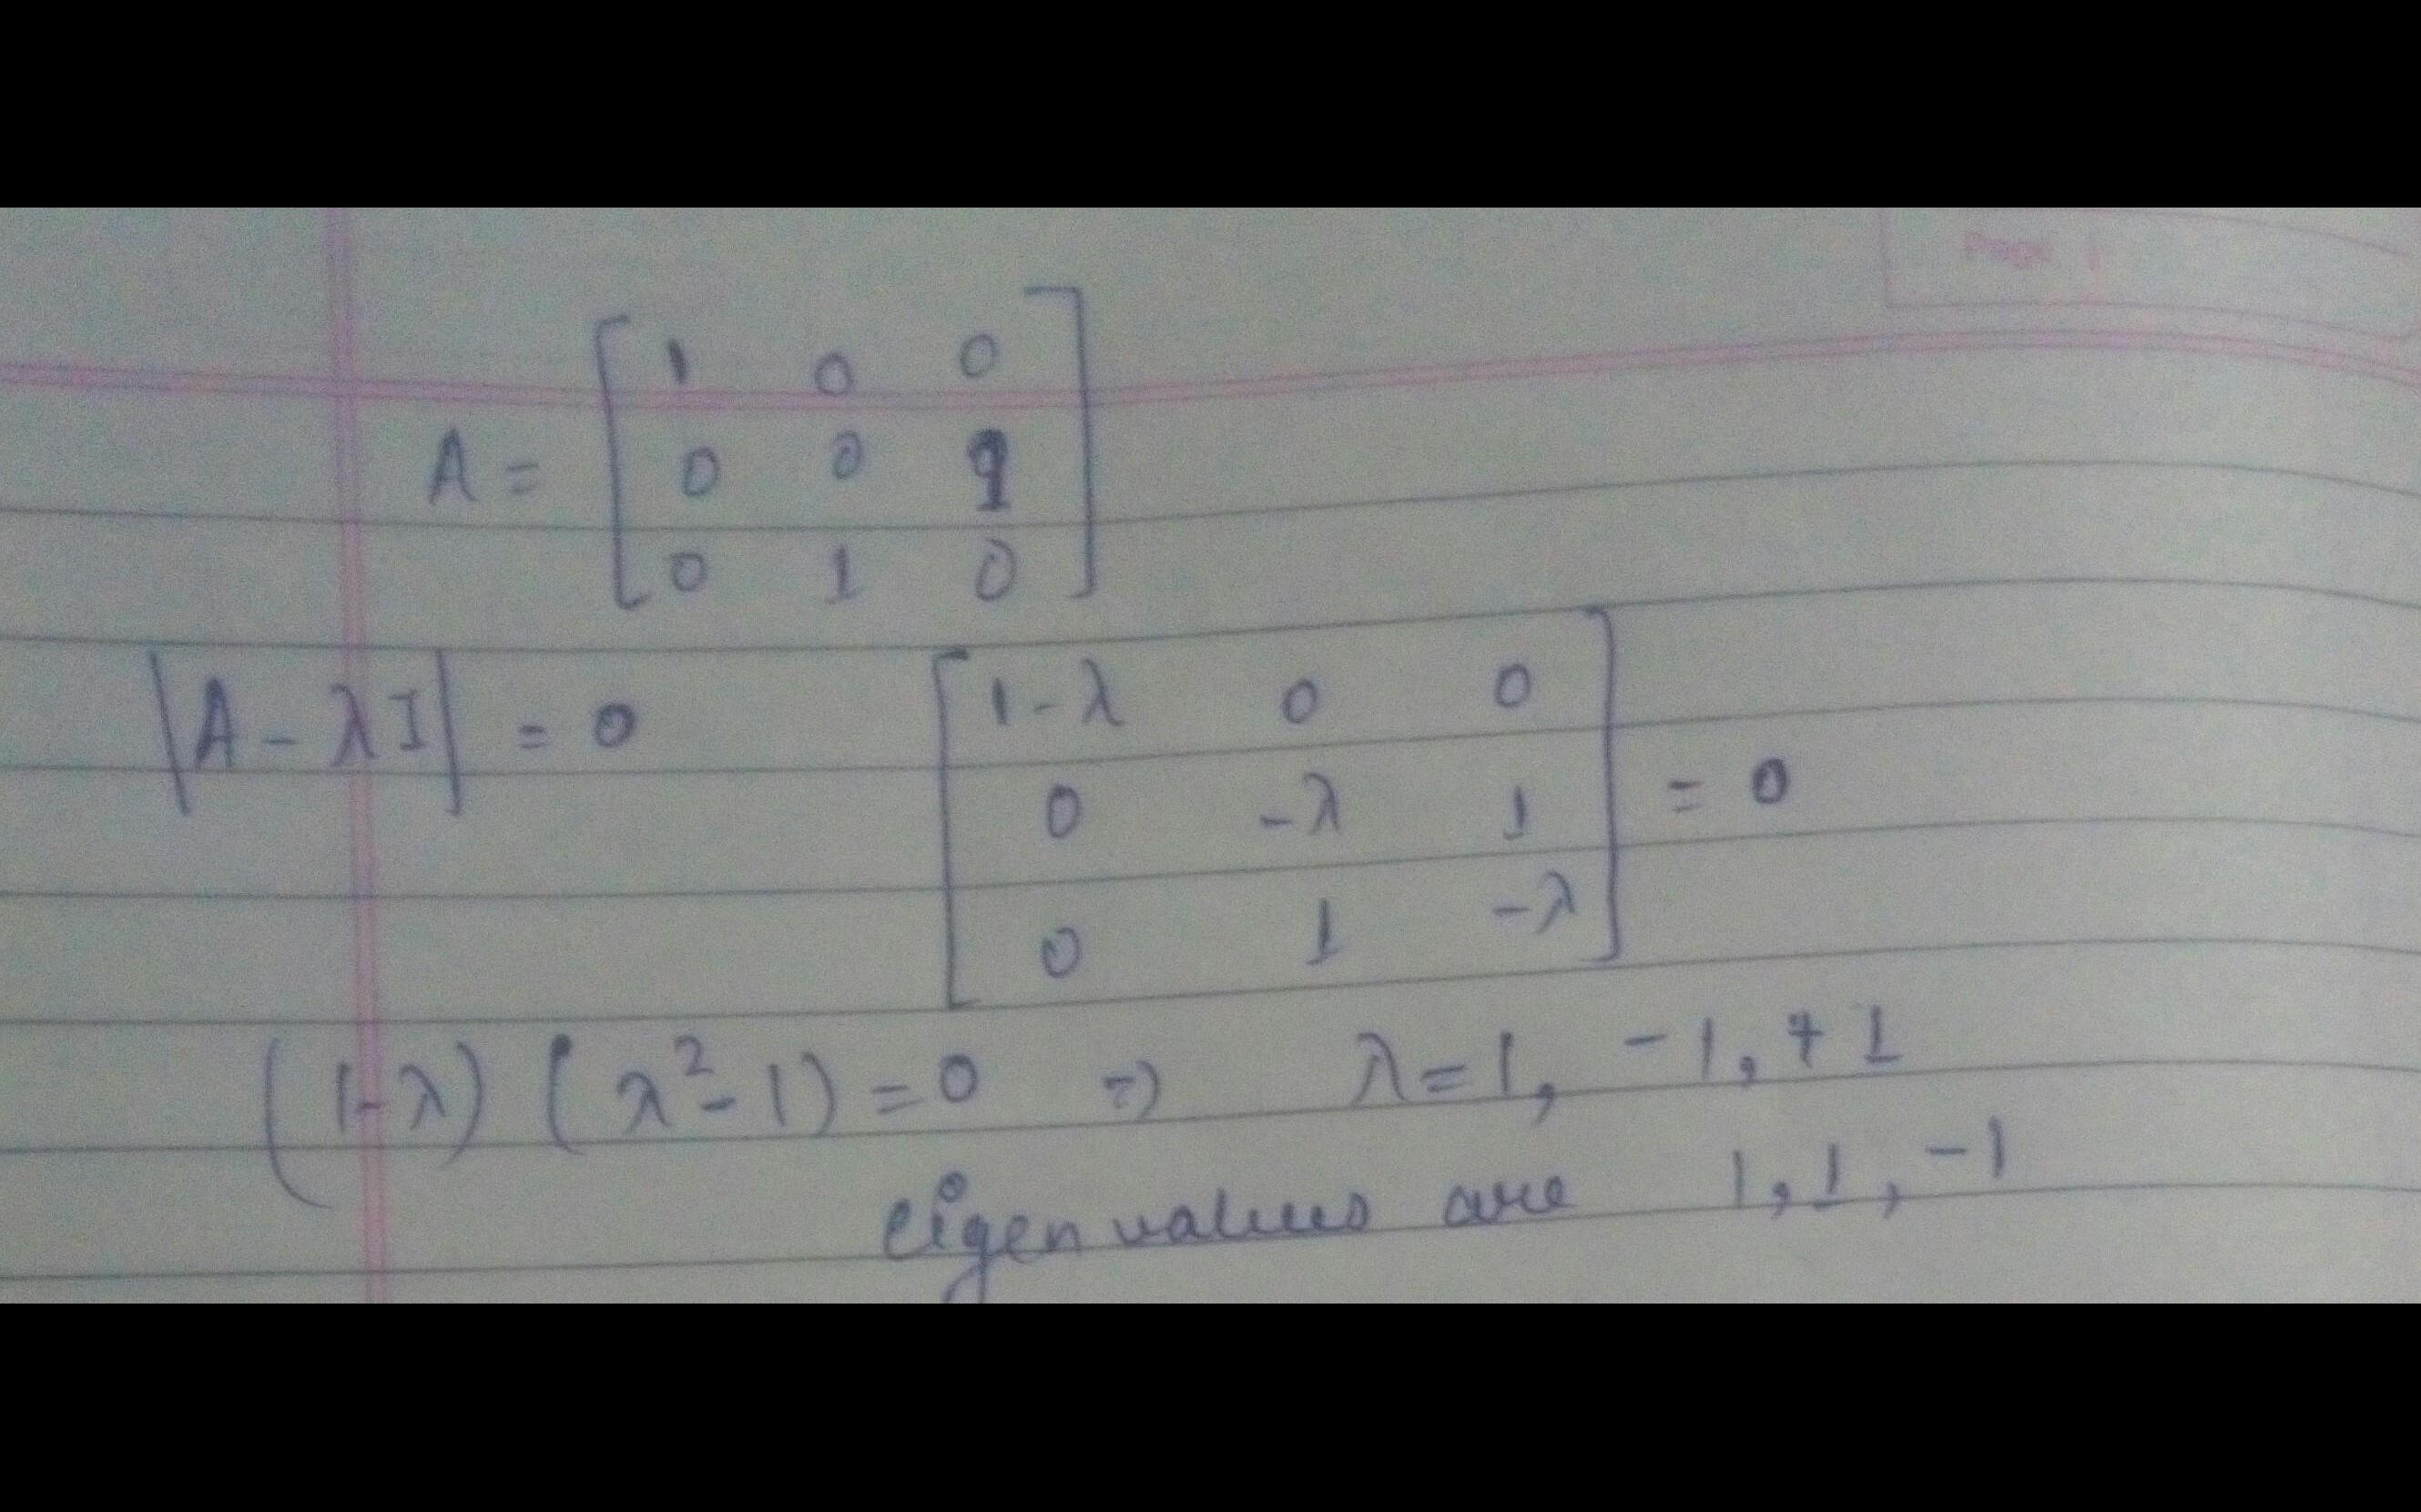 Page
1 0 0
A = 0 0 1
0 1 0
|A - λI| = 0
1-λ 0 0
0 -λ 1 = 0
0 1 -λ
(1-λ) (λ²-1) = 0 => λ = 1, -1, +1
eigen values are 1, 1, -1